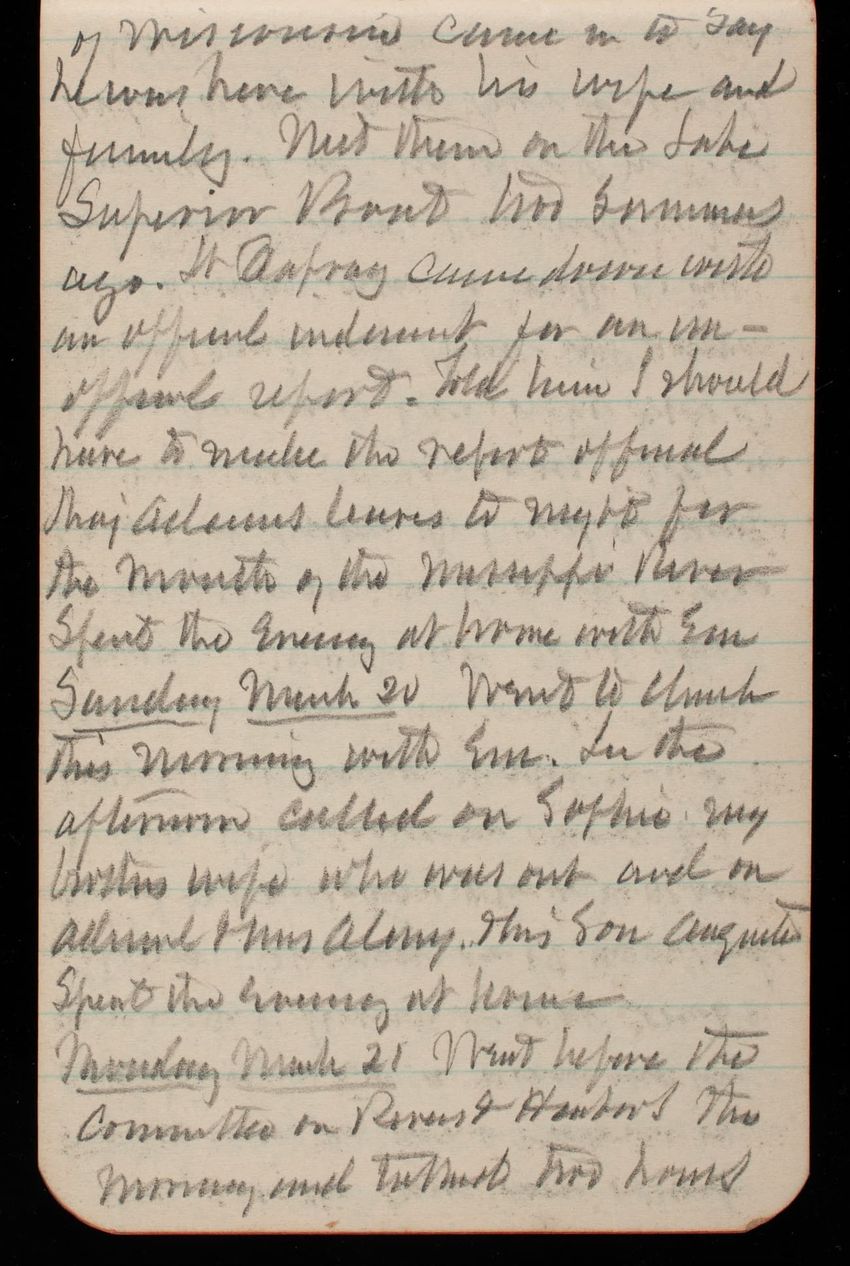 of Wisconsin came in to say
he was here with his wife and
family. Met them on the Lake
Superior Boat two Summers
ago. Lt came down with
an official indorsement for an un-
official report. Told him I should
have to make the report official
Maj Adams leaves to night for
the Mouth of the Mississippi River
Spent the Evening at home with Em
Sunday March 20 Went to church
this morning with Em. In the
afternoon called on Sophie my
brothers wife who was out and on
Admiral & Mrs Almy. His Son Augustus
Spent the Evening at home
Monday March 21 Went before the
Committee on Rivers & Harbors the
morning and talked two hours